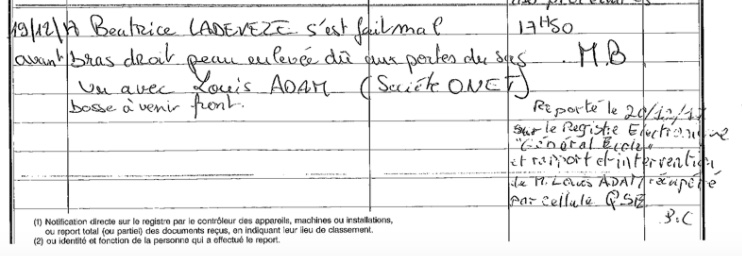 19/12/17 Beatrice LADEVEZE s'est fait mal
17H50
avant bras droit peau enlevée dû aux portes du sas
M.B
Vu avec Louis ADAM (Société ONET)
bosse à venir front.
Reporté le 20/12/17
sur le Registre Electronique
"Général Ecole"
et rapport d'intervention
de M. Louis ADAM récupéré
par cellule QSE
B.C
(1) Notification directe sur le registre par le contrôleur des appareils, machines ou installations,
ou report total (ou partiel) des documents reçus, en indiquant leur lieu de classement.
(2) ou identité et fonction de la personne qui a effectué le report.